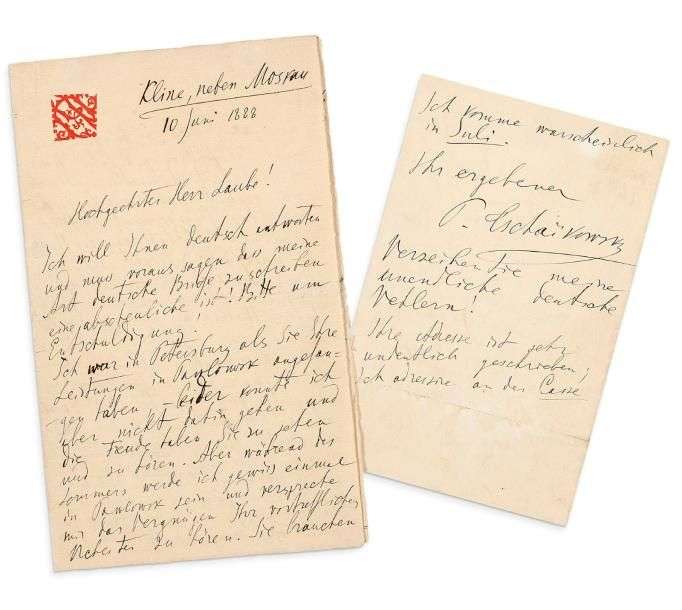 Kline, neben Moskau
10 Juni 1888
Hochgeehrter Herr Laube!
Ich will Ihnen deutsch antworten
und muss voraus sagen dass meine
Art deutsche Briefe zu schreiben
eine abscheuliche ist! Bitte um
Entschuldigung!
Ich war in Petersburg als Sie Ihre
Leistungen in Pawlowsk angefan-
gen haben – leider konnte ich
aber nicht dahin gehen und
die Freude haben Sie zu sehen
und zu hören. Aber während des
Sommers werde ich gewiss einmal
in Pawlowsk sein und verspreche
mir das Vergnügen Ihr vortreffliches
Orchester zu hören. Sie brauchen
Ich komme warscheinlich
in Juli.
Ihr ergebener
P. Tschaïkowsky
Verzeihen Sie meine
unendliche deutsche
Fehlern!
Ihre Adresse ist sehr
undeutlich geschrieben;
ich adressire an das Casse